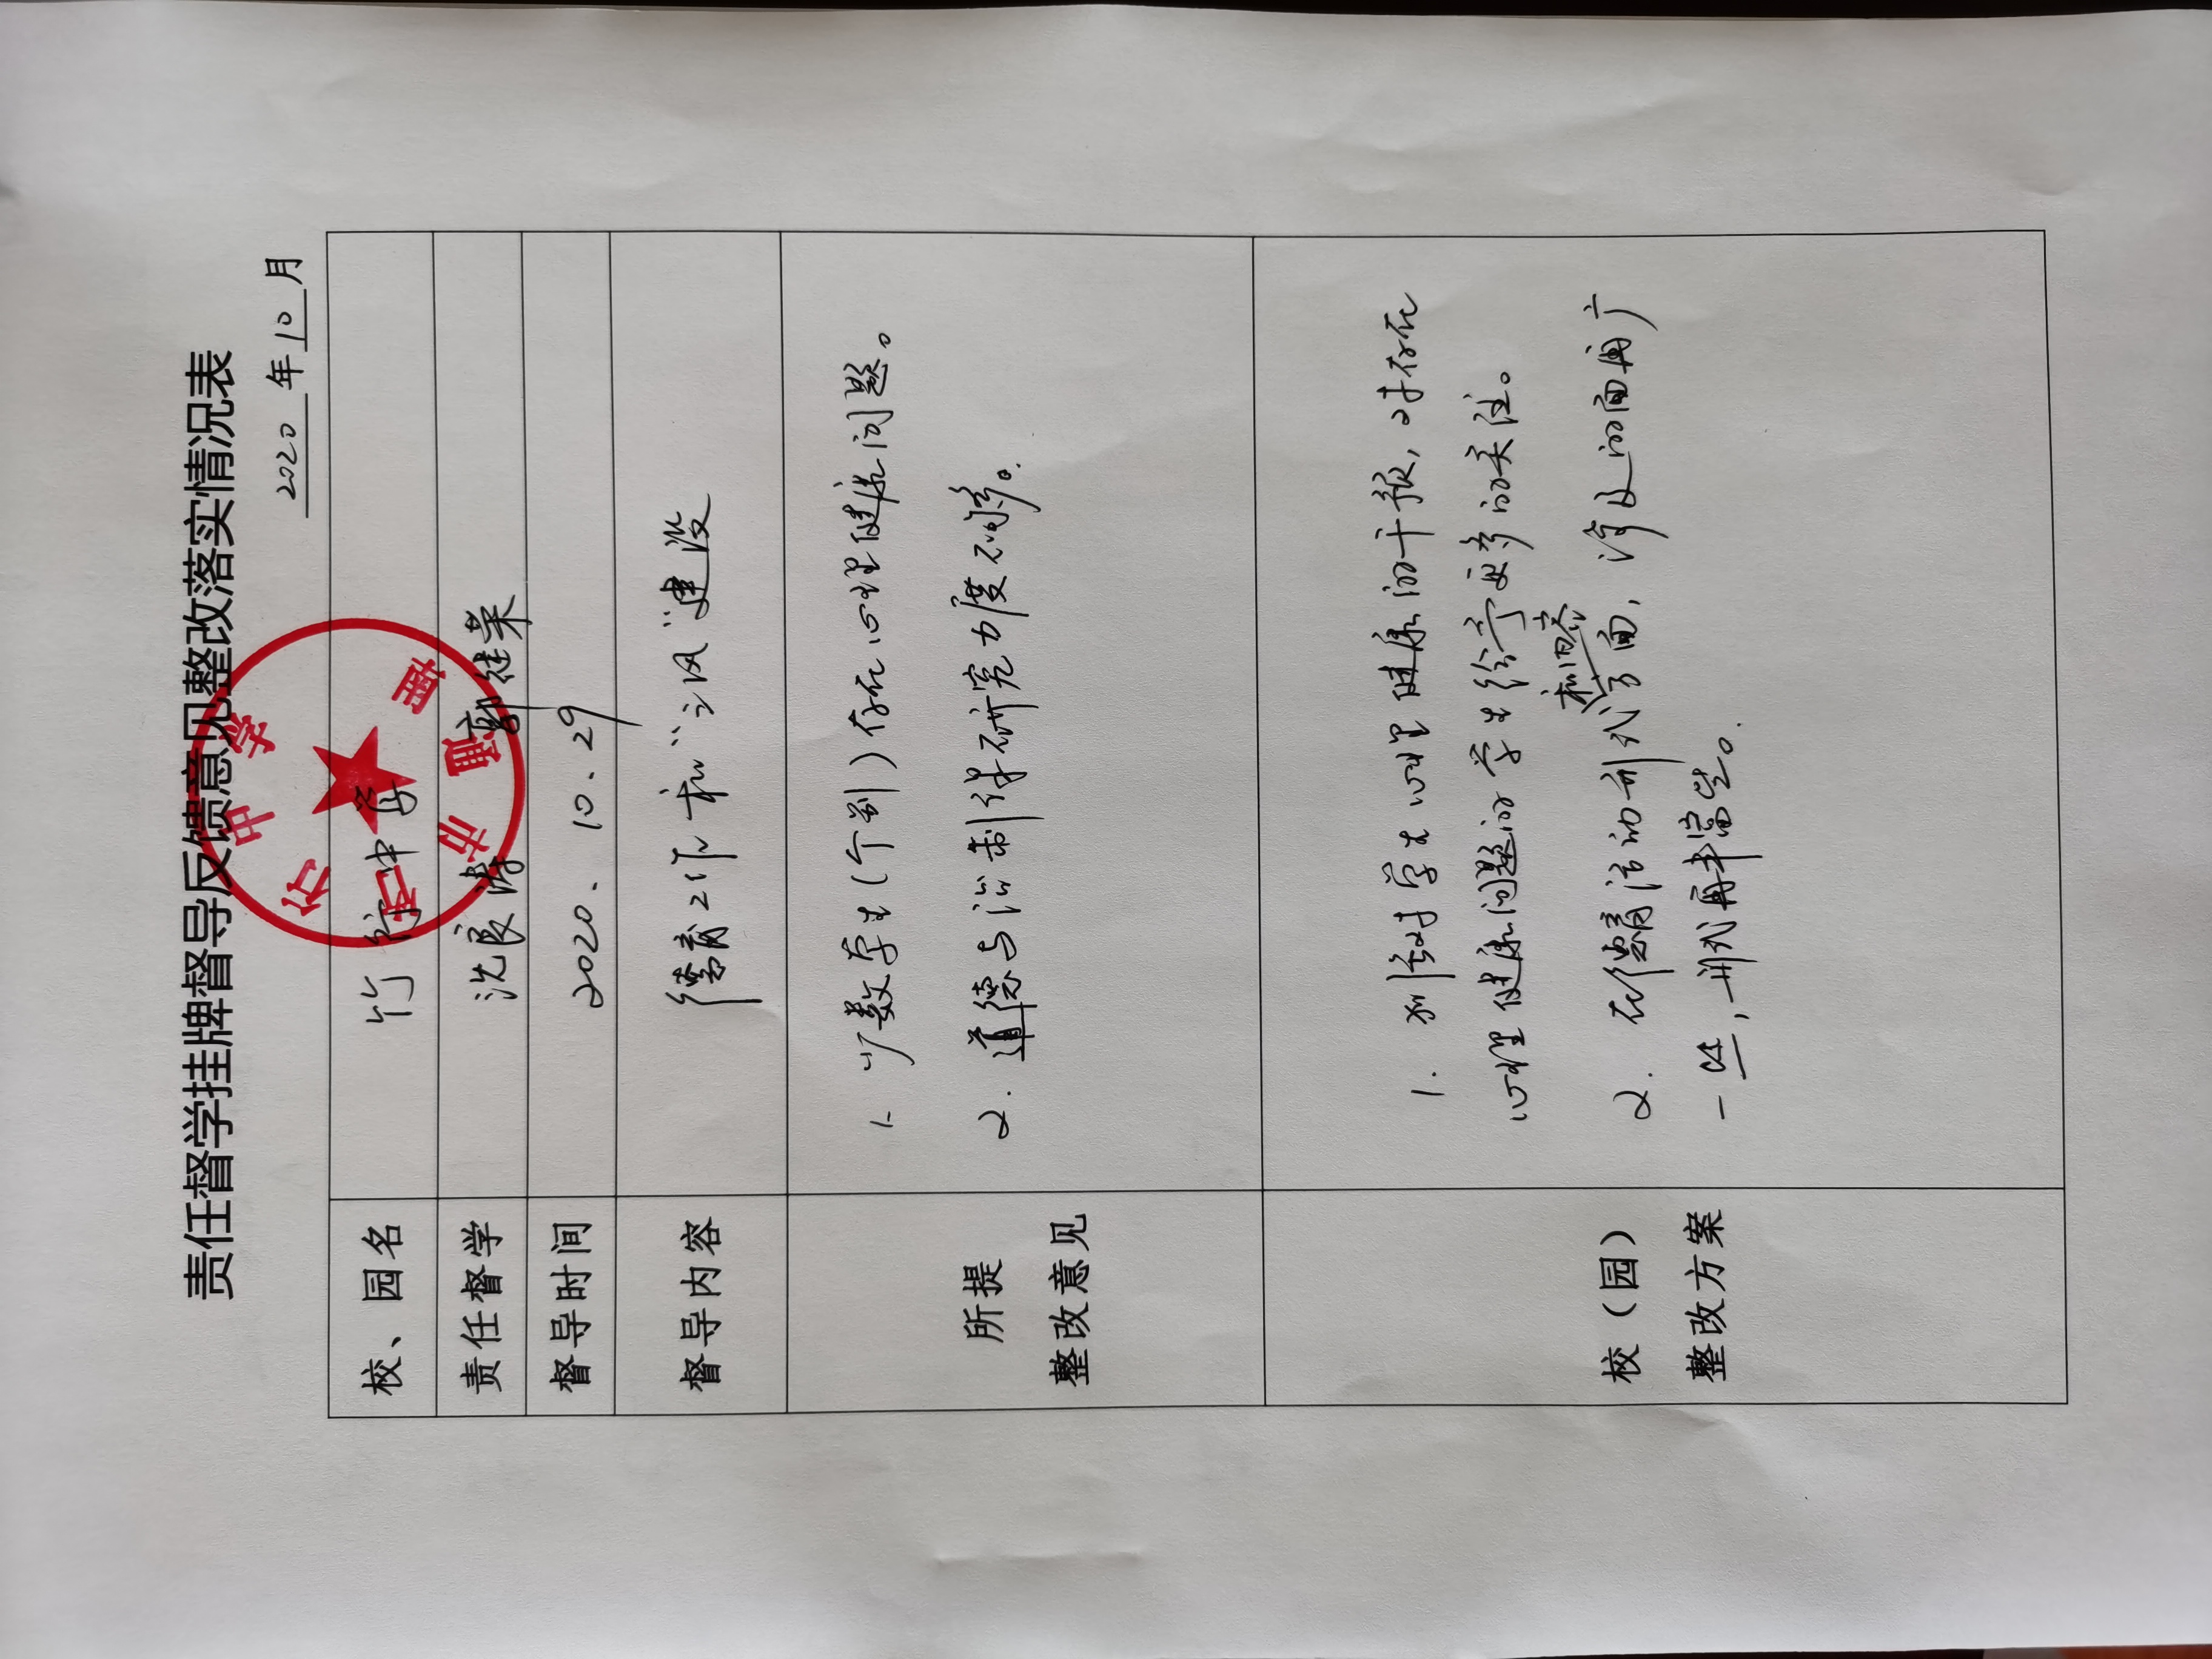 责任督学挂牌督导反馈意见整改落实情况表
2020 年 10 月
校、园名 竹行中学
责任督学 沈良涛 郭继荣
督导时间 2020.10.29
督导内容 德育工作和“三风”建设
所提
整改意见
1. 少数学生(个别)存在心理健康问题。
2. 道德与法制课研究力度不够。
校（园）
整改方案
1. 加强对学生心理健康的干预，对存在
心理健康问题的学生给予更多的关注。
2. 在德育活动形式方面，涉及的面再广
和内容
一些，形式再丰富些。
南通市
竹行中学